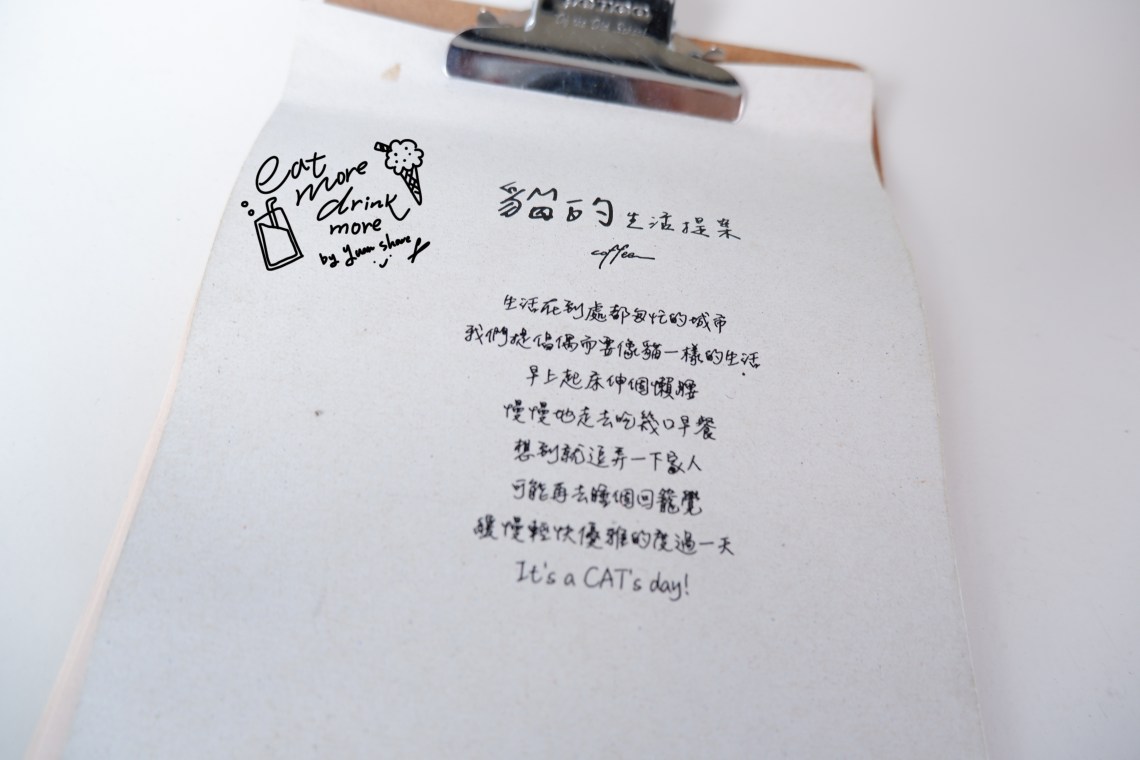 eat
more
drink
more
by yuan share
貓的生活提案
coffee
生活在到處都匆忙的城市
我們提倡偶而要像貓一樣的生活
早上起床伸個懶腰
慢慢地走去吃幾口早餐
想到就逗弄一下家人
可能再去睡個回籠覺
緩慢輕快優雅的度過一天
It's a CAT's day!